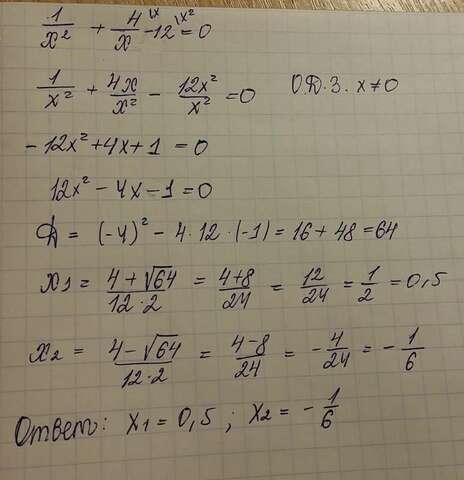 1/x² + 4/x |x - 12 |x² = 0
1/x² + 4x/x² - 12x²/x² = 0 О.Д.З. x≠0
-12x² + 4x + 1 = 0
12x² - 4x - 1 = 0
Д = (-4)² - 4·12·(-1) = 16 + 48 = 64
x₁ = (4+√64)/(12·2) = (4+8)/24 = 12/24 = 1/2 = 0,5
x₂ = (4-√64)/(12·2) = (4-8)/24 = -4/24 = -1/6
Ответ: x₁ = 0,5 ; x₂ = -1/6